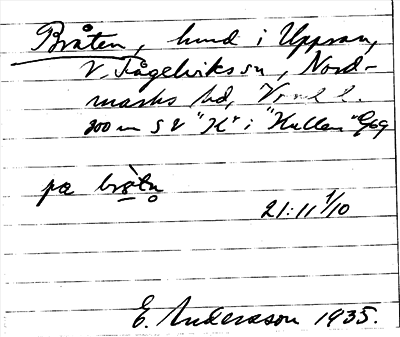 Bråten, hmd i Uppsan,
V. Fågelviks sn, Nord-
marks hd, Vrml l.
200 m S V "K" i "Kullen" Gg9
pæ brǫ̀tn̥
21:11 1/10
E. Andersson 1935.